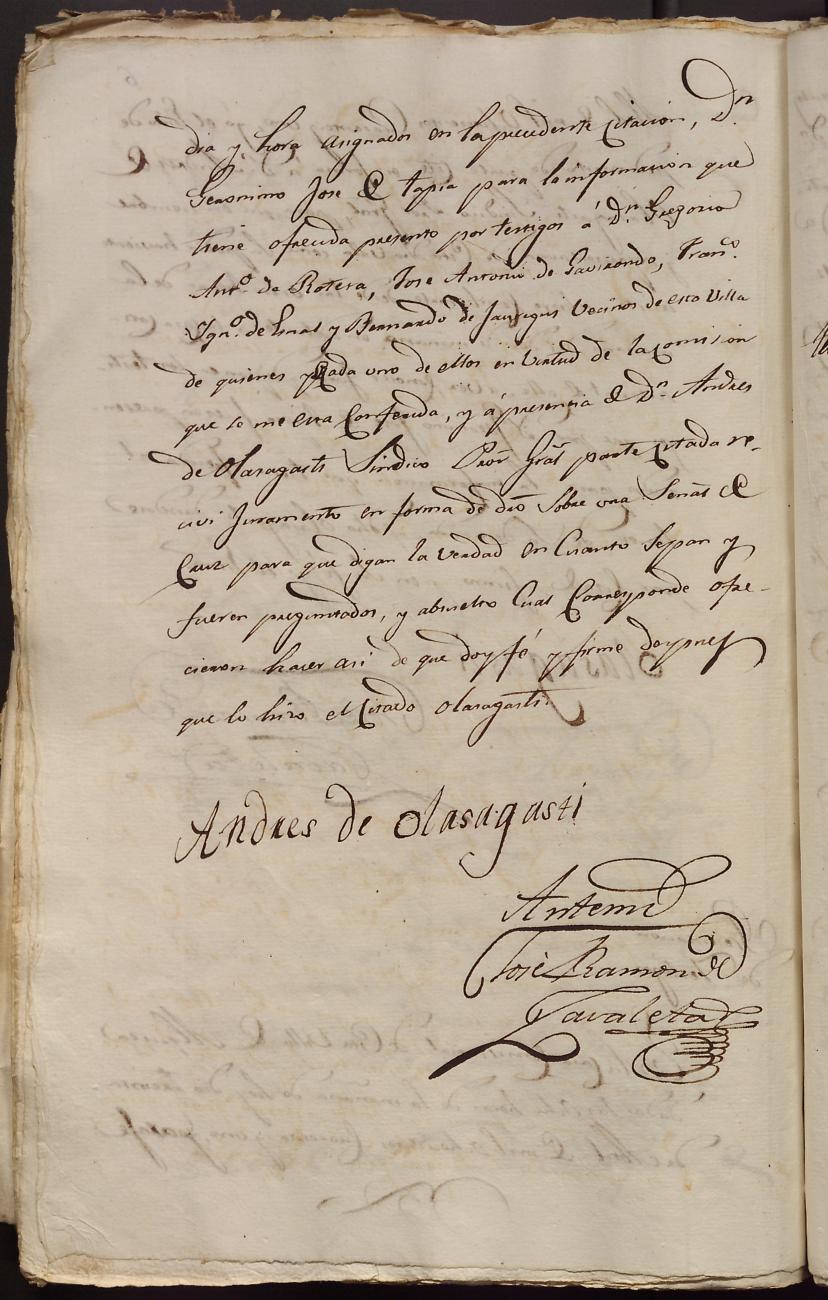 dia y hora asignados en la precedente citacion, Dn.
Geronimo Jose de tapia para la informacion que
tiene ofrecida presento por testigos á Dn. Gregorio
Anto. de Rotera, Jose Antonio de Gavirondo, Franco.
Igno. de y Bernardo de Jauregui Vecinos de esta Villa
de quienes y Cada uno de ellos en virtud de la comision
que se me esta Conferida, y á presencia de Dn. Andres
de Olasagasti Sindico Pror Gral parte citada re-
civi Juramento en forma de dro sobre una Señal de
Cruz para que digan la verdad en Cuanto Sepan y
fueren preguntados, y absuelto Cual Corresponde ofre-
cieron hacer asi de que doy fé y firme despues
que lo hizo el Citado Olasagasti.
Andres de Olasagasti
Antemi
Josè Ramon de
Zavaleta